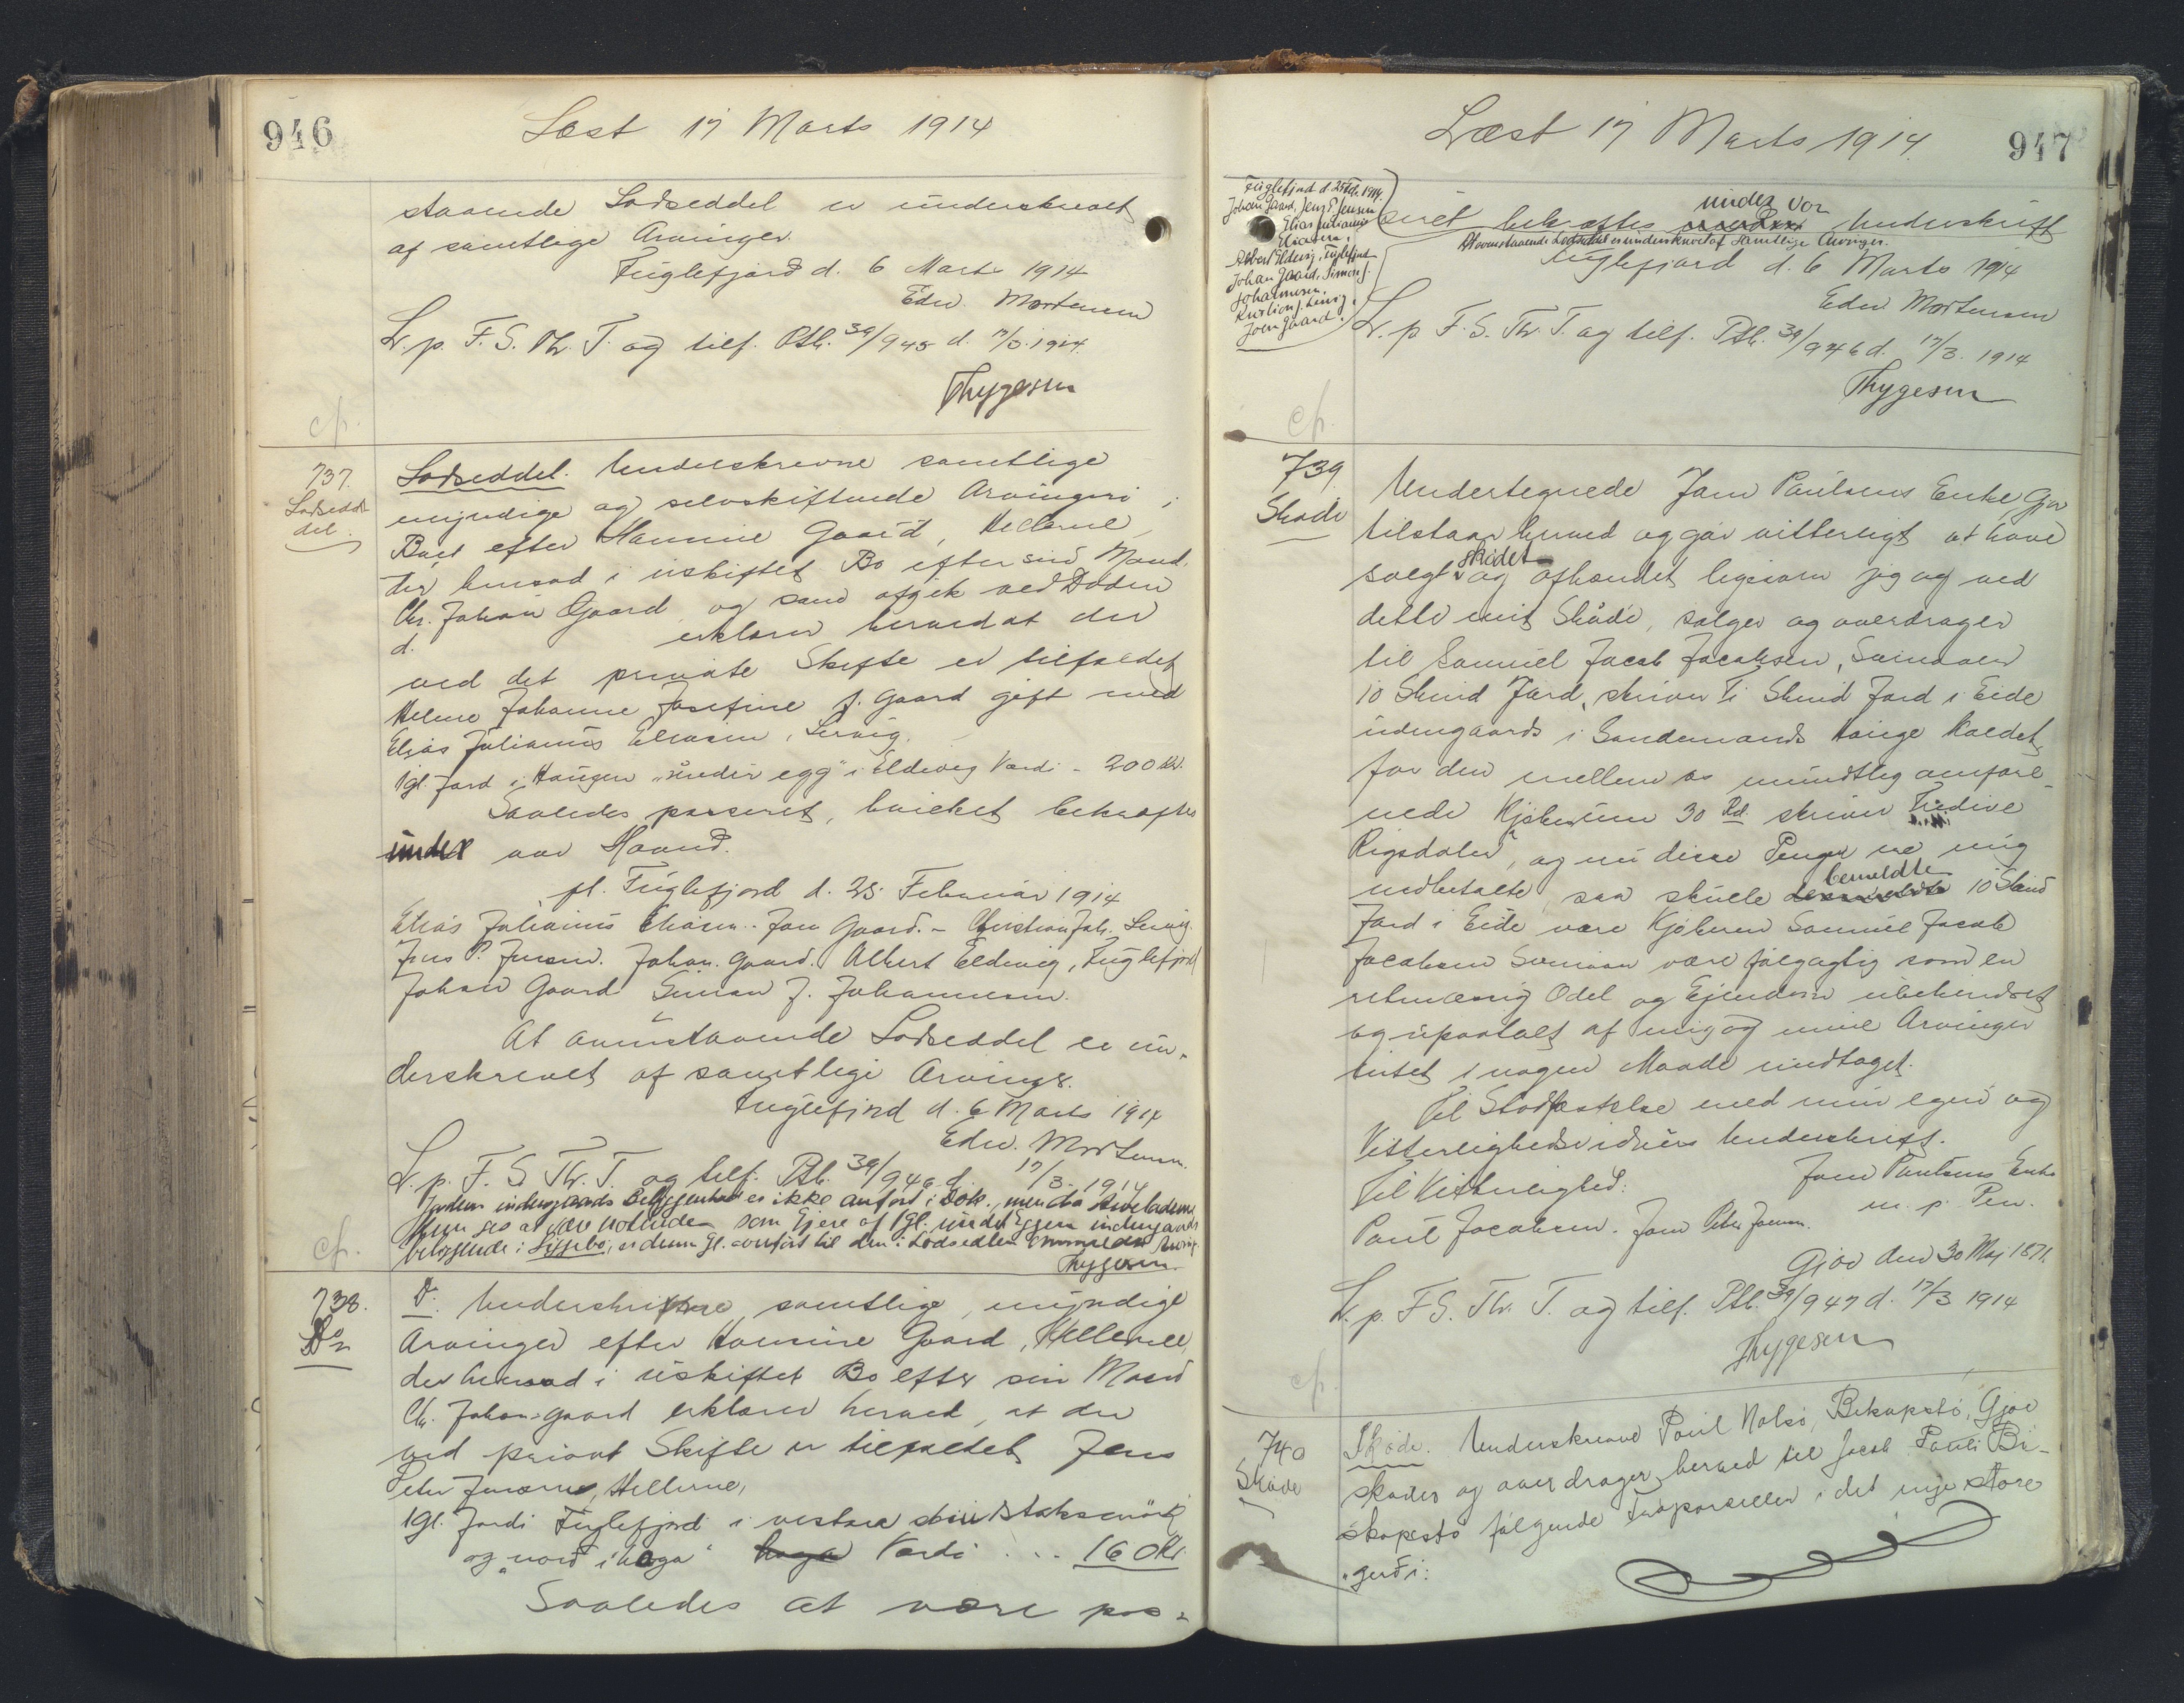 946
Læst 17 Marts 1914
staaende Lodseddel er underskrevet
af samtlige Arvinger.
Fuglefjord d. 6 Marts 1914
Edw. Mortensen
L. p. F. S. Th. T. og tilf. Ptb. 39/945 d. 17/3. 1914.
Thygesen
cp.
737.
Lodseddel
del.
Lodseddel. Underskrevne samtlige
myndige og selvskiftende Arvinger i
Boet efter Hannine Gaard, Hellerne,
der hensad i uskiftet Bo efter sin Mand
Chr. Johan Gaard og som afgik ved Døden
d. erklærer herved at der
ved det private Skifte er tilfaldet
Helene Johanne Josefine f. Gaard gift med
Elias Julianus Eliasen, Lervig.
1 gl. Jord i Haugen "under egg" i Eldevig Værdi - 200 Kr.
Saaledes passeret, hvilket bekræftes
under vor Haand.
pt. Fuglefjord d. 25 Februar 1914
Elias Julianus Eliasen. - Joen Gaard. - Christian Joh. Lervig.
Jens P. Jensen. Johan Gaard. Albert Eldevig, Fuglefjord
Johan Gaard Simon J. Johannesen.
At ovenstaaende Lodseddel er un-
derskrevet af samtlige Arvinger.
Fuglefjord d. 6 Marts 1914
Edw. Mortensen.
L. p. F. S. Th. T. og tilf. Ptb. 39/946 d. 17/3. 1914
Jordens indengaards Beliggenhed er ikke anført i Dok., men da Arveladerne
kun ses at være noterede som Ejere af 1 gl. under Eggen indengaards
beliggende i , er denne gl. overført til den i Lodsedlen
Thygesen
cp.
738.
Do
Do. Underskrevne samtlige, myndige
Arvinger efter Hannine Gaard, Hellerne,
der hensad i uskiftet Bo efter sin Mand
Chr. Johan Gaard erklærer herved, at der
ved privat Skifte er tilfaldet Jens
Peter Jensen, Hellerne,
1 gl. Jord i Fuglefjord i vestara
og "norð i haga" Værdi ... 160 Kr.
Saaledes at være pas-
Læst 17 Marts 1914.
947
Fuglefjord d. 25 Feb. 1914.
Johan Gaard, Jens P. Jensen
Elias Julianus
Eliasen.
Albert Eldevig, Fuglefjord
Johan Gaard, Simon J.
Johannesen.
Kristian J. Lervig.
Joen Gaard.
seret bekræftes under vor Underskrift
At ovenstaaende Lodseddel er underskrevet af samtlige Arvinger.
Fuglefjord d. 6 Marts 1914
Edw. Mortensen
L. p. F. S. Th. T. og tilf. Ptb. 39/946 d. 17/3. 1914
Thygesen
cp.
739.
Skøde
Undertegnede Jans Poulsens Enke, Gjov
tilstaar herved og gør vitterligt at have
solgt skødet og afhændet ligesom jeg og ved
dette mit Skøde, sælger og overdrager
til Samuel Jacob Jacobsen, Svinaaen
10 Skind Jord, skriver Ti Skind Jord i Eide
udengaards i Sandemands Hauge kaldet,
for den mellem os mundtlig omfore-
nede Kjøbesum 30 Rd. skriver Tredive
Rigsdaler, og nu disse Penge ere mig
udbetalte, saa skulle bemeldte 10 Skind
Jord i Eide være Kjøberen Samuel Jacob
Jacobsen Svinaaen være følgagtig som en
retmæssig Odel og Ejendom ubehindret
og upaatalt af mig og mine Arvinger
intet i nogen Maade undtaget.
Til Stadfæstelse med min egen og
Vitterlighedsvidners Underskrift.
Til Vitterlighed:
Jans Poulsens Enke
m. p. Pen.
Poul Jacobsen. Jans Peter Joensen.
Gjov den 30 Maj 1871.
L. p. F. S. Th. T. og tilf. Ptb. 39/947 d. 17/3 1914
Thygesen
cp.
740
Skøde
Skøde. Underskrevne Poul Nolsø, Biskopstø, Gjov
skøder og overdrager herved til Jacob Pauli Bi-
skopstø følgende Traðparceller i det nye store
"gerði: